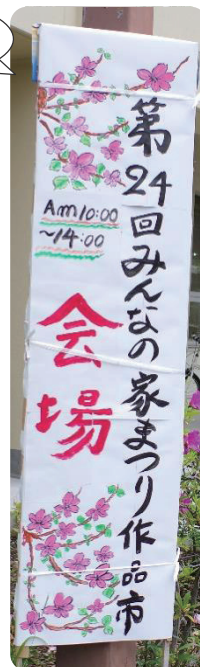 第24回みんなの家まつり作品市
Am10:00
~14:00
会場